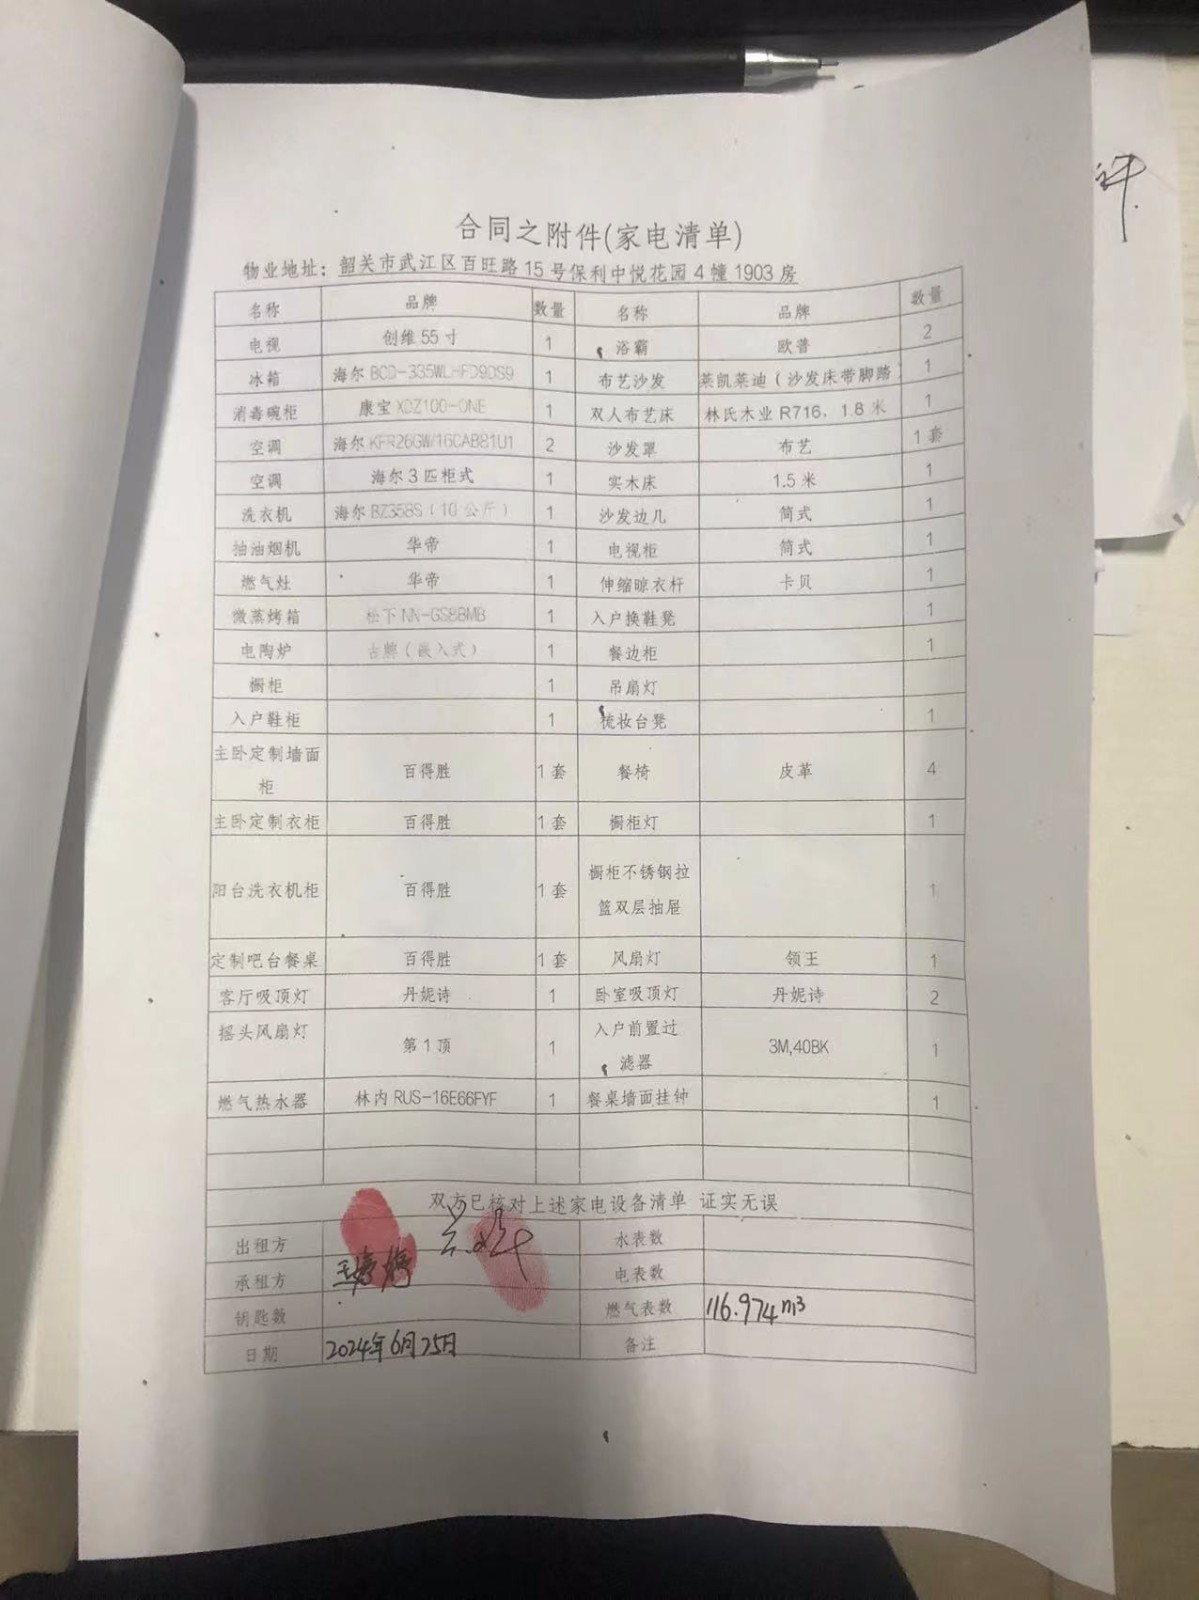 合同之附件(家电清单)
物业地址：韶关市武江区百旺路15号保利中悦花园4幢1903房
名称 品牌 数量 名称 品牌 数量
电视 创维55寸 1 浴霸 欧普 2
冰箱 海尔 1 布艺沙发 莱凯莱迪（沙发床带脚踏 1
消毒碗柜 康宝XDZ100-ONE 1 双人布艺床 林氏木业R716，1.8米 1
空调 海尔KFR26GW/16CAB81U1 2 沙发罩 布艺 1套
空调 海尔3匹柜式 1 实木床 1.5米 1
洗衣机 海尔BZ358S（10公斤） 1 沙发边几 简式 1
抽油烟机 华帝 1 电视柜 简式 1
燃气灶 华帝 1 伸缩晾衣杆 卡贝 1
微蒸烤箱 松下 1 入户换鞋凳 1
电陶炉 （嵌入式） 1 餐边柜 1
橱柜 1 吊扇灯
入户鞋柜 1 梳妆台凳 1
主卧定制墙面
柜 百得胜 1套 餐椅 皮革 4
主卧定制衣柜 百得胜 1套 橱柜灯 1
阳台洗衣机柜 百得胜 1套 橱柜不锈钢拉
篮双层抽屉 1
定制吧台餐桌 百得胜 1套 风扇灯 领王 1
客厅吸顶灯 丹妮诗 1 卧室吸顶灯 丹妮诗 2
摇头风扇灯 第1顶 1 入户前置过
滤器 3M,40BK 1
燃气热水器 林内RUS-16E66FYF 1 餐桌墙面挂钟 1
双方已核对上述家电设备清单 证实无误
出租方 水表数
承租方 王婷婷 电表数
钥匙数 燃气表数 116.974m3
日期 2024年6月25日 备注